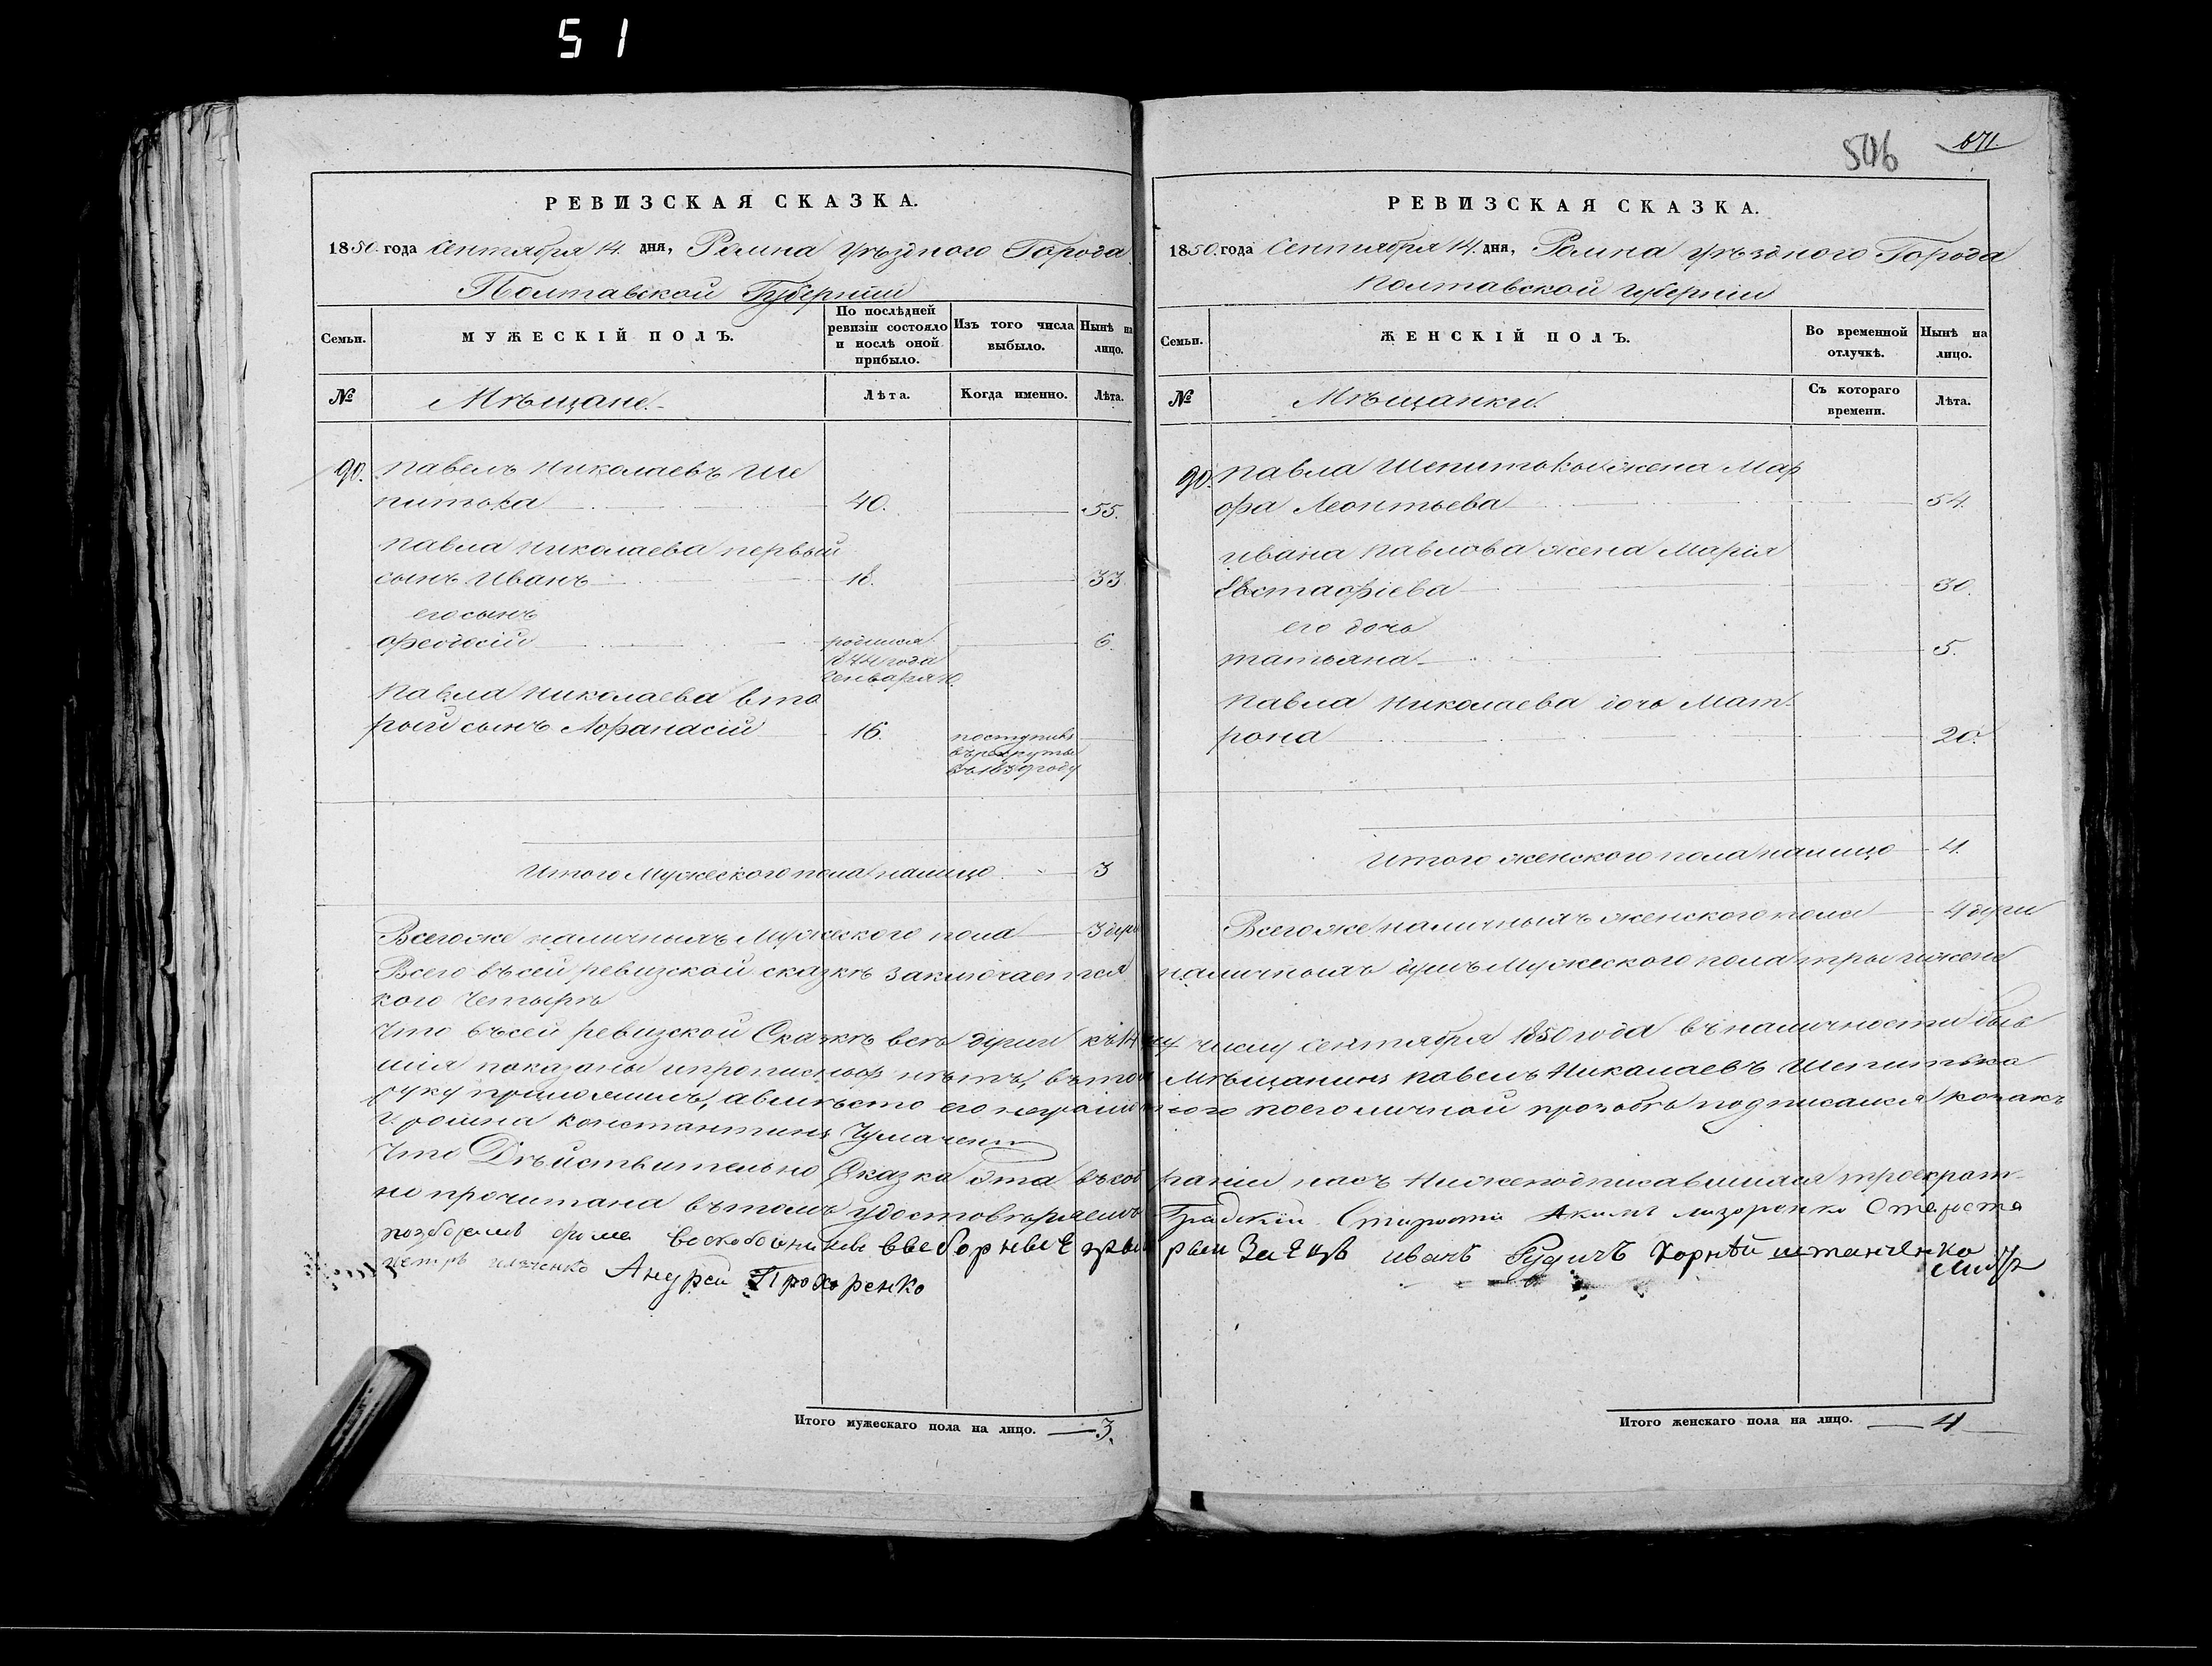 51
РЕВИЗСКАЯ СКАЗКА.
1850. года Сентября 14. дня, Ромна Уѣзднаго Города
Полтавской Губерніи
Семьи.
МУЖЕСКІЙ ПОЛЪ.
По послѣдней ревизіи состояло и послѣ оной прибыло.
Изъ того числа выбыло.
Нынѣ на лицо.
№
Мѣщане.
Лѣта.
Когда именно.
Лѣта.
90. Павелъ Николаевъ Ше
питька 40. 55.
Павла Николаева первый
сынъ Иванъ 18. 33.
его сынъ
Федосій родился 6.
1844 года
Генваря 10.
Павла Николаева вто
рой сынъ Афанасій 16. поступилъ
въ рекруты
въ 1839 году
Итого Мужескаго пола налицо 3
Всего же наличныхъ Мужескаго пола 3 душ
546
671.
РЕВИЗСКАЯ СКАЗКА.
1850. года Сентября 14. дня, Ромна Уѣзднаго Города
Полтавской Губерніи
Семьи.
ЖЕНСКІЙ ПОЛЪ.
Во временной отлучкѣ.
Нынѣ на лицо.
№
Мѣщанки.
Съ котораго времени.
Лѣта.
90. Павла Шепитько жена Мар
фа Леонтьева 54.
Ивана Павлова жена Марія
Евстафіева 30.
его дочь
Татьяна 5.
Павла Николаева дочь Мат
рона 20.
Итого женскаго пола налицо 4.
Всего же наличныхъ женскаго пола 4 души
Всего въ сей ревизской сказкѣ заключается наличныхъ душъ Мужескаго пола три и женс
кого четыре
Что въ сей ревизской Сказкѣ всѣ души къ 14му числу сентября 1850 года въ наличности быв
шія показаны и прописныхъ нѣтъ, въ томъ Мѣщанинъ Павелъ Николаевъ Шепитька
руку приложилъ, а вмѣсто его неграмотнаго по его личной прозьбѣ подписался козакъ
г. ромна Константинъ Чумаченко
Что Дѣйствительно Сказка эта въ собраніи насъ Нижеподписавшихся троекрат
но прочитана въ томъ удостовѣряемъ Градскій Староста Акимъ Лазоренко Староста
Фома Воскобойниковъ выборные Заецъ иванъ Рудичъ Корнѣй штанченко
петръ Андрей Прохоренко
Итого мужескаго пола на лицо. 3.
Итого женскаго пола на лицо. 4